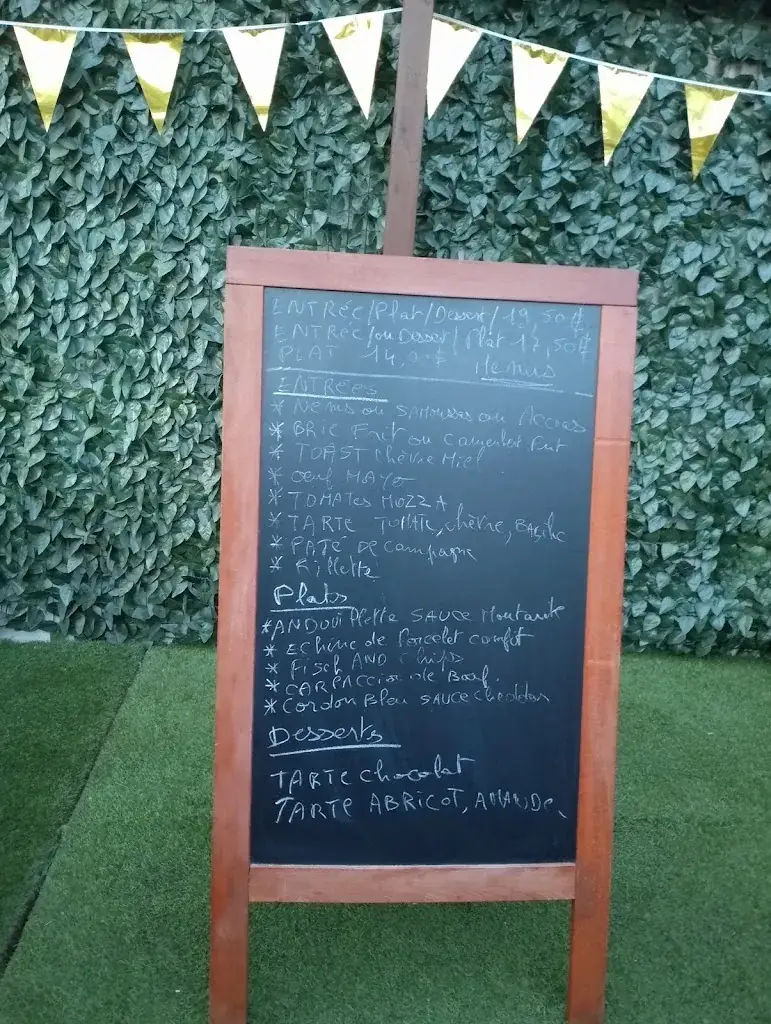 ENTRÉE/Plat/Dessert/19,50€
ENTRÉE/ou Dessert/Plat 17,50€
PLAT 14,00€ Menus
ENTRÉES
* Nems ou SAMOUSSAS ou Accras
* BRIC Frit ou Camembert Frit
* TOAST chèvre Miel
* Oeuf MAYO
* TOMATES MOZZA
* TARTE TOMATE, chèvre, BASilic
* PATÉ DE Campagne
* Rillette
Plats
* ANDOUillette SAUCE Moutarde
* Echine de Porcelet confit
* Fisch AND Chips
* CARPACCIO de Boeuf
* Cordon Bleu SAUCE Cheddar
Desserts
TARTE chocolat
TARTE ABRICOT, AMANDE